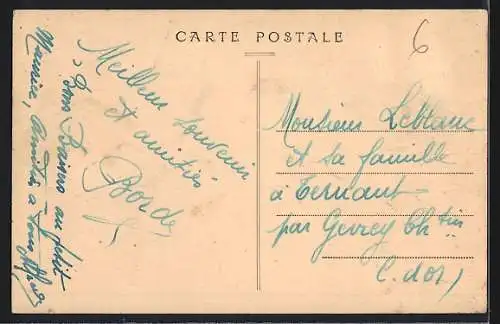 CARTE POSTALE
6
Meilleur souvenir
et amitiés
Borde
Bons Baisers au petit
Maurice, Amitiés à tous
Monsieur Leblanc
et sa famille
à Ternant
par Gevrey Ch tin
C. d'or)